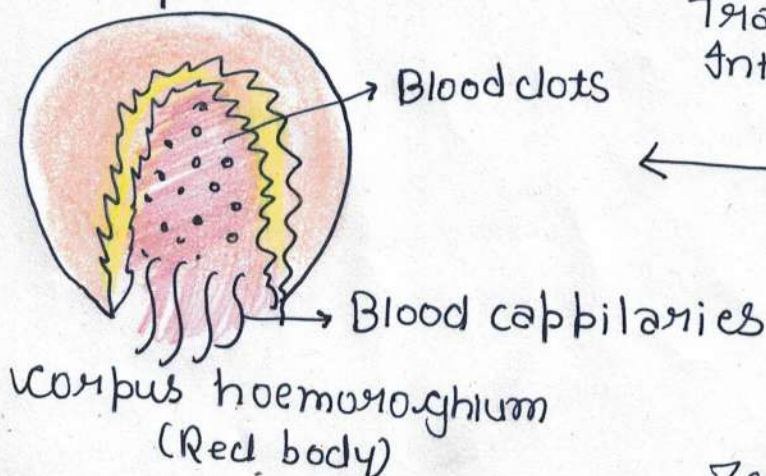 Blood clots
Blood cappilaries
Corpus hoemoroghium
(Red body)